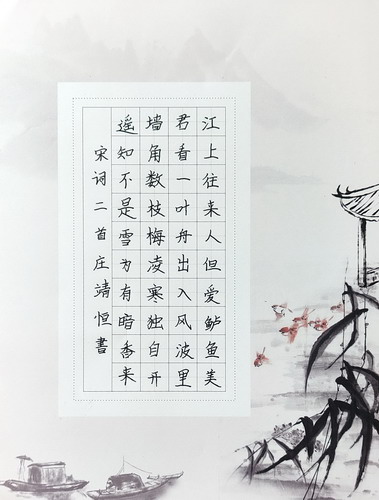 江上往来人但爱鲈鱼美
君看一叶舟出入风波里
墙角数枝梅凌寒独自开
遥知不是雪为有暗香来
宋词二首庄靖恒書